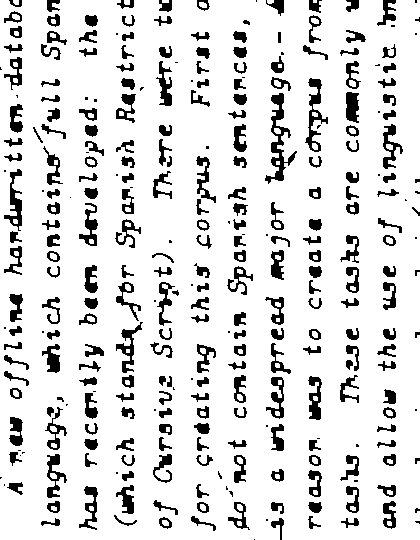 A new offline handwritten databa
language, which contains full Span
has recently been developed: the
(which stands for Spanish Restrict
of Cursive Script). There were tw
for creating this corpus. First a
do not contain Spanish sentences,
is a widespread major language.
reason was to create a corpus from
tasks. These tasks are commonly
and allow the use of linguistic